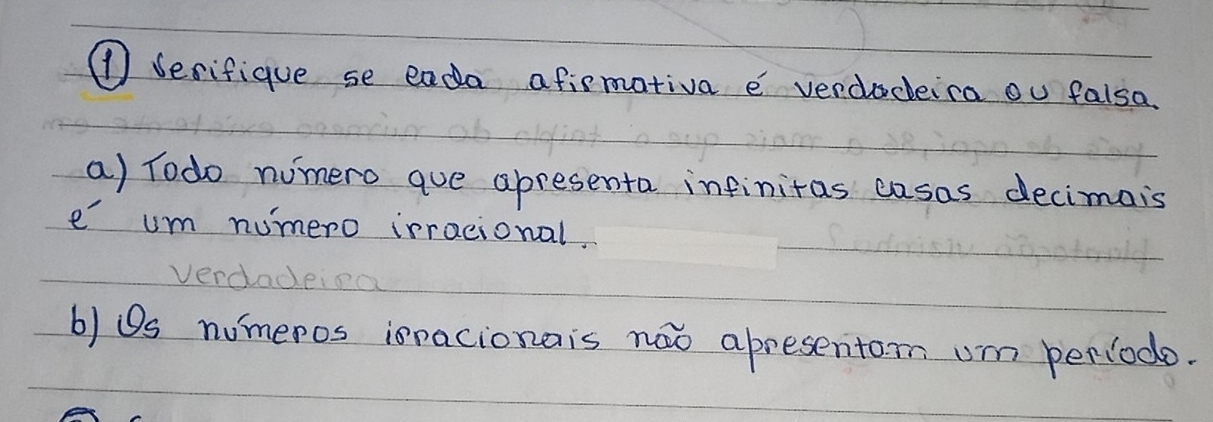 ① Verifique se cada afirmativa é verdadeira ou falsa.
a) Todo número que apresenta infinitas casas decimais
é um número irracional.
Verdadeira
b) Os números irracionais não apresentam um período.